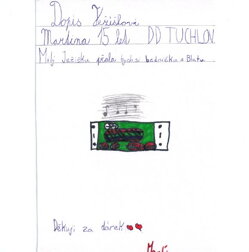 Dopis Ježíškovi
Martina 15 let DD TUCHLOV
Milý Ježíšku přála bych bedničku s
Děkuji za dárek